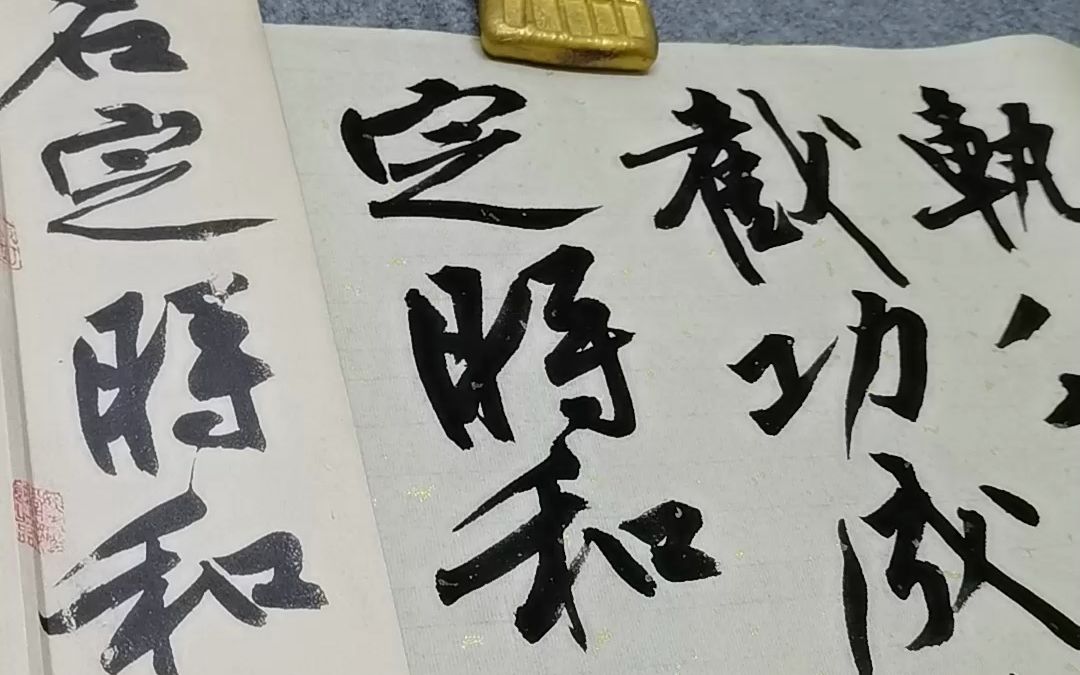 執
截功成
定時和
定時和